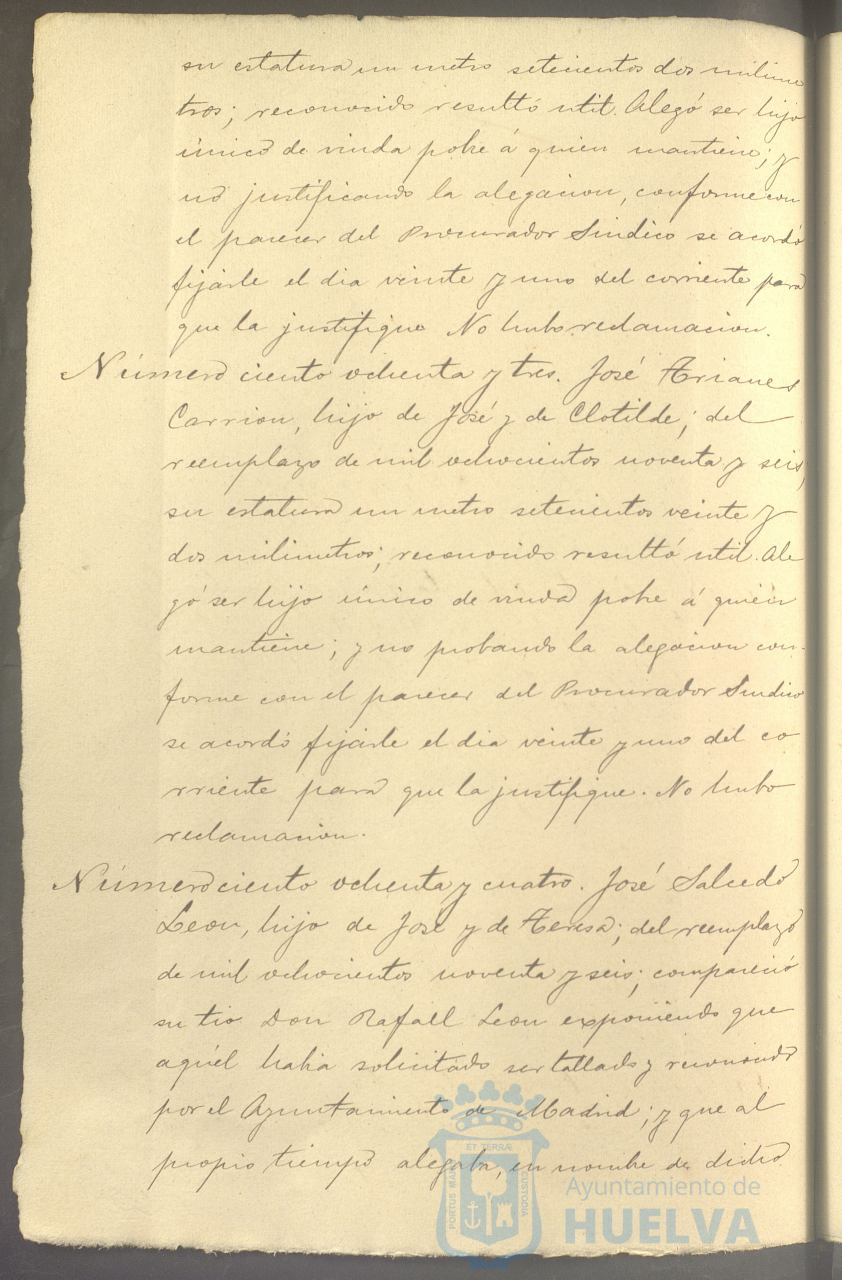 su estatura un metro setecientos dos milime
tros; reconocido resultó util. Alegó ser hijo
único de viuda pobre á quien mantiene; y
no justificando la alegacion, conforme con
el parecer del Procurador Sindico se acordó
fijarle el dia veinte y uno del corriente para
que la justifique. No hubo reclamacion.
Número ciento ochenta y tres. José Arianes
Carrion, hijo de José y de Clotilde; del
reemplazo de mil ochocientos noventa y seis,
su estatura un metro setecientos veinte y
dos milimetros; reconocido resultó util. Ale
gó ser hijo único de viuda pobre á quien
mantiene; y no probando la alegacion con-
forme con el parecer del Procurador Sindico
se acordó fijarle el dia veinte y uno del co
rriente para que la justifique. No hubo
reclamacion.
Número ciento ochenta y cuatro. José Salcedo
Leon, hijo de José y de Teresa; del reemplazo
de mil ochocientos noventa y seis; compareció
su tio Don Rafael Leon exponiendo que
aquél habia solicitado ser tallado y reconocido
por el Ayuntamiento de Madrid; y que al
propio tiempo alegaba, en nombre de dicho
ET TERRÆ
PORTUS MARIS
CUSTODIA
Ayuntamiento de
HUELVA